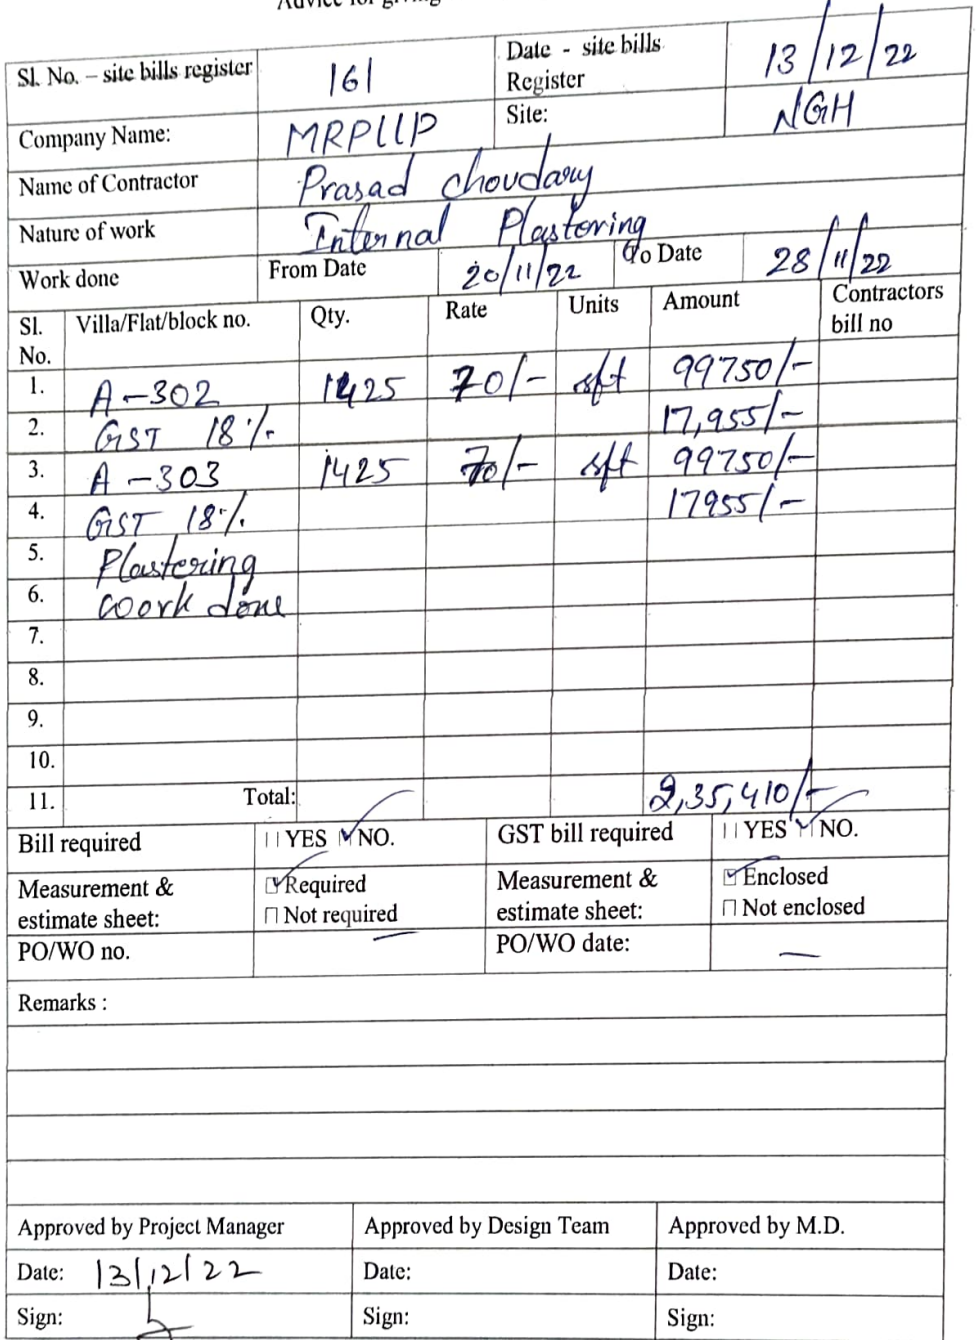 Advice for giving
Sl. No. – site bills register 161 Date - site bills Register 13/12/22
Company Name: MRPLLP Site: NGH
Name of Contractor Prasad choudary
Nature of work Internal Plastering
Work done From Date 20/11/22 To Date 28/11/22
Sl. No. Villa/Flat/block no. Qty. Rate Units Amount Contractors bill no
1. A-302 1425 70/- sft 99750/-
2. GST 18% 17,955/-
3. A-303 1425 70/- sft 99750/-
4. GST 18% 17955/-
5. Plastering
6. work done
7.
8.
9.
10.
11. Total: 2,35,410/-
Bill required YES NO. GST bill required YES NO.
Measurement & estimate sheet: Required Not required Measurement & estimate sheet: Enclosed Not enclosed
PO/WO no. PO/WO date: —
Remarks :
Approved by Project Manager Approved by Design Team Approved by M.D.
Date: 13/12/22 Date: Date:
Sign: Sign: Sign: